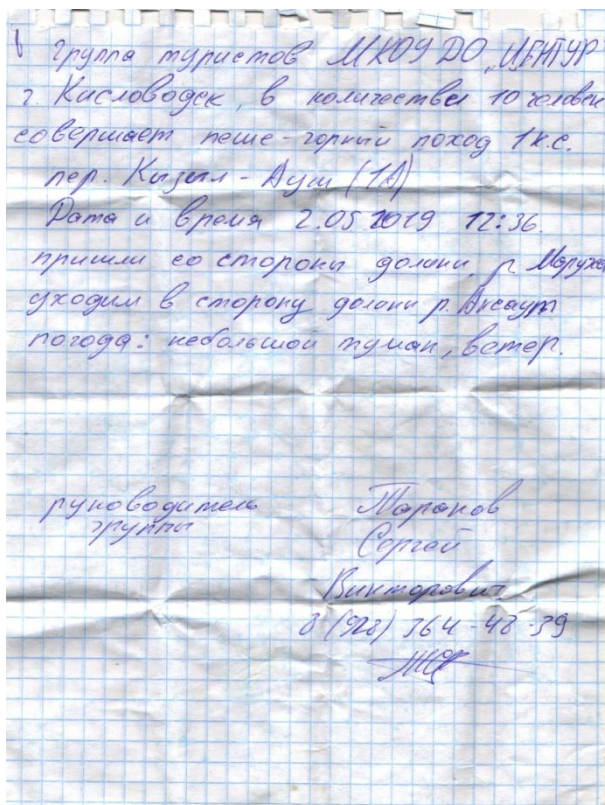 Группа туристов МКОУ ДО „ЦДТТУР"
г. Кисловодск, в количестве 10 человек
совершает пеше-горный поход 1 к.с.
пер. Кызыл-Ауш (1А)
Дата и время 2.05 2019 12:36.
пришли со стороны долины р. Маруха
уходим в сторону долины р. Аксаут
погода: небольшой туман, ветер.
руководитель
группы
Таранов
Сергей
Викторович
8 (928) 364-48-39